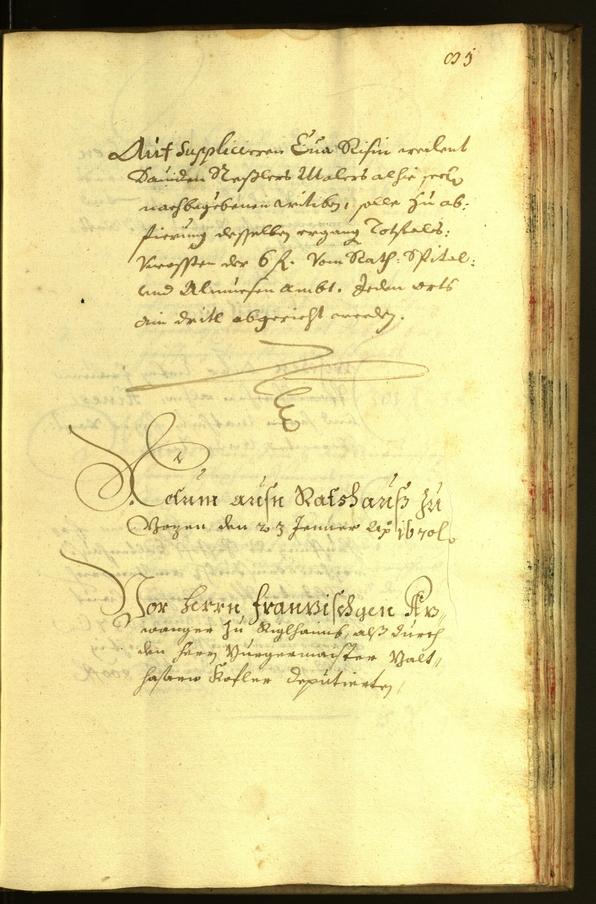 Auf Supplicieren Eua Risin weilent
Dauiden Neßlers Malers alhie seel:
nachbegebenen wittiben, solle zu ab:
fierung desselben ergang Todtfals:
Uncossten der 6 fl. vom Rath: Spital:
und Almuesen ambt. Jeden orts
ain dritl abgericht werden.
Actum aufm Rathauß zu
Bozen den 23 Jenner Ao 1670
Vor herrn Franzischgen
zu Riglhaimb, alß durch
den herrn Burgermaister Balt-
hasarn Kofler deputierten